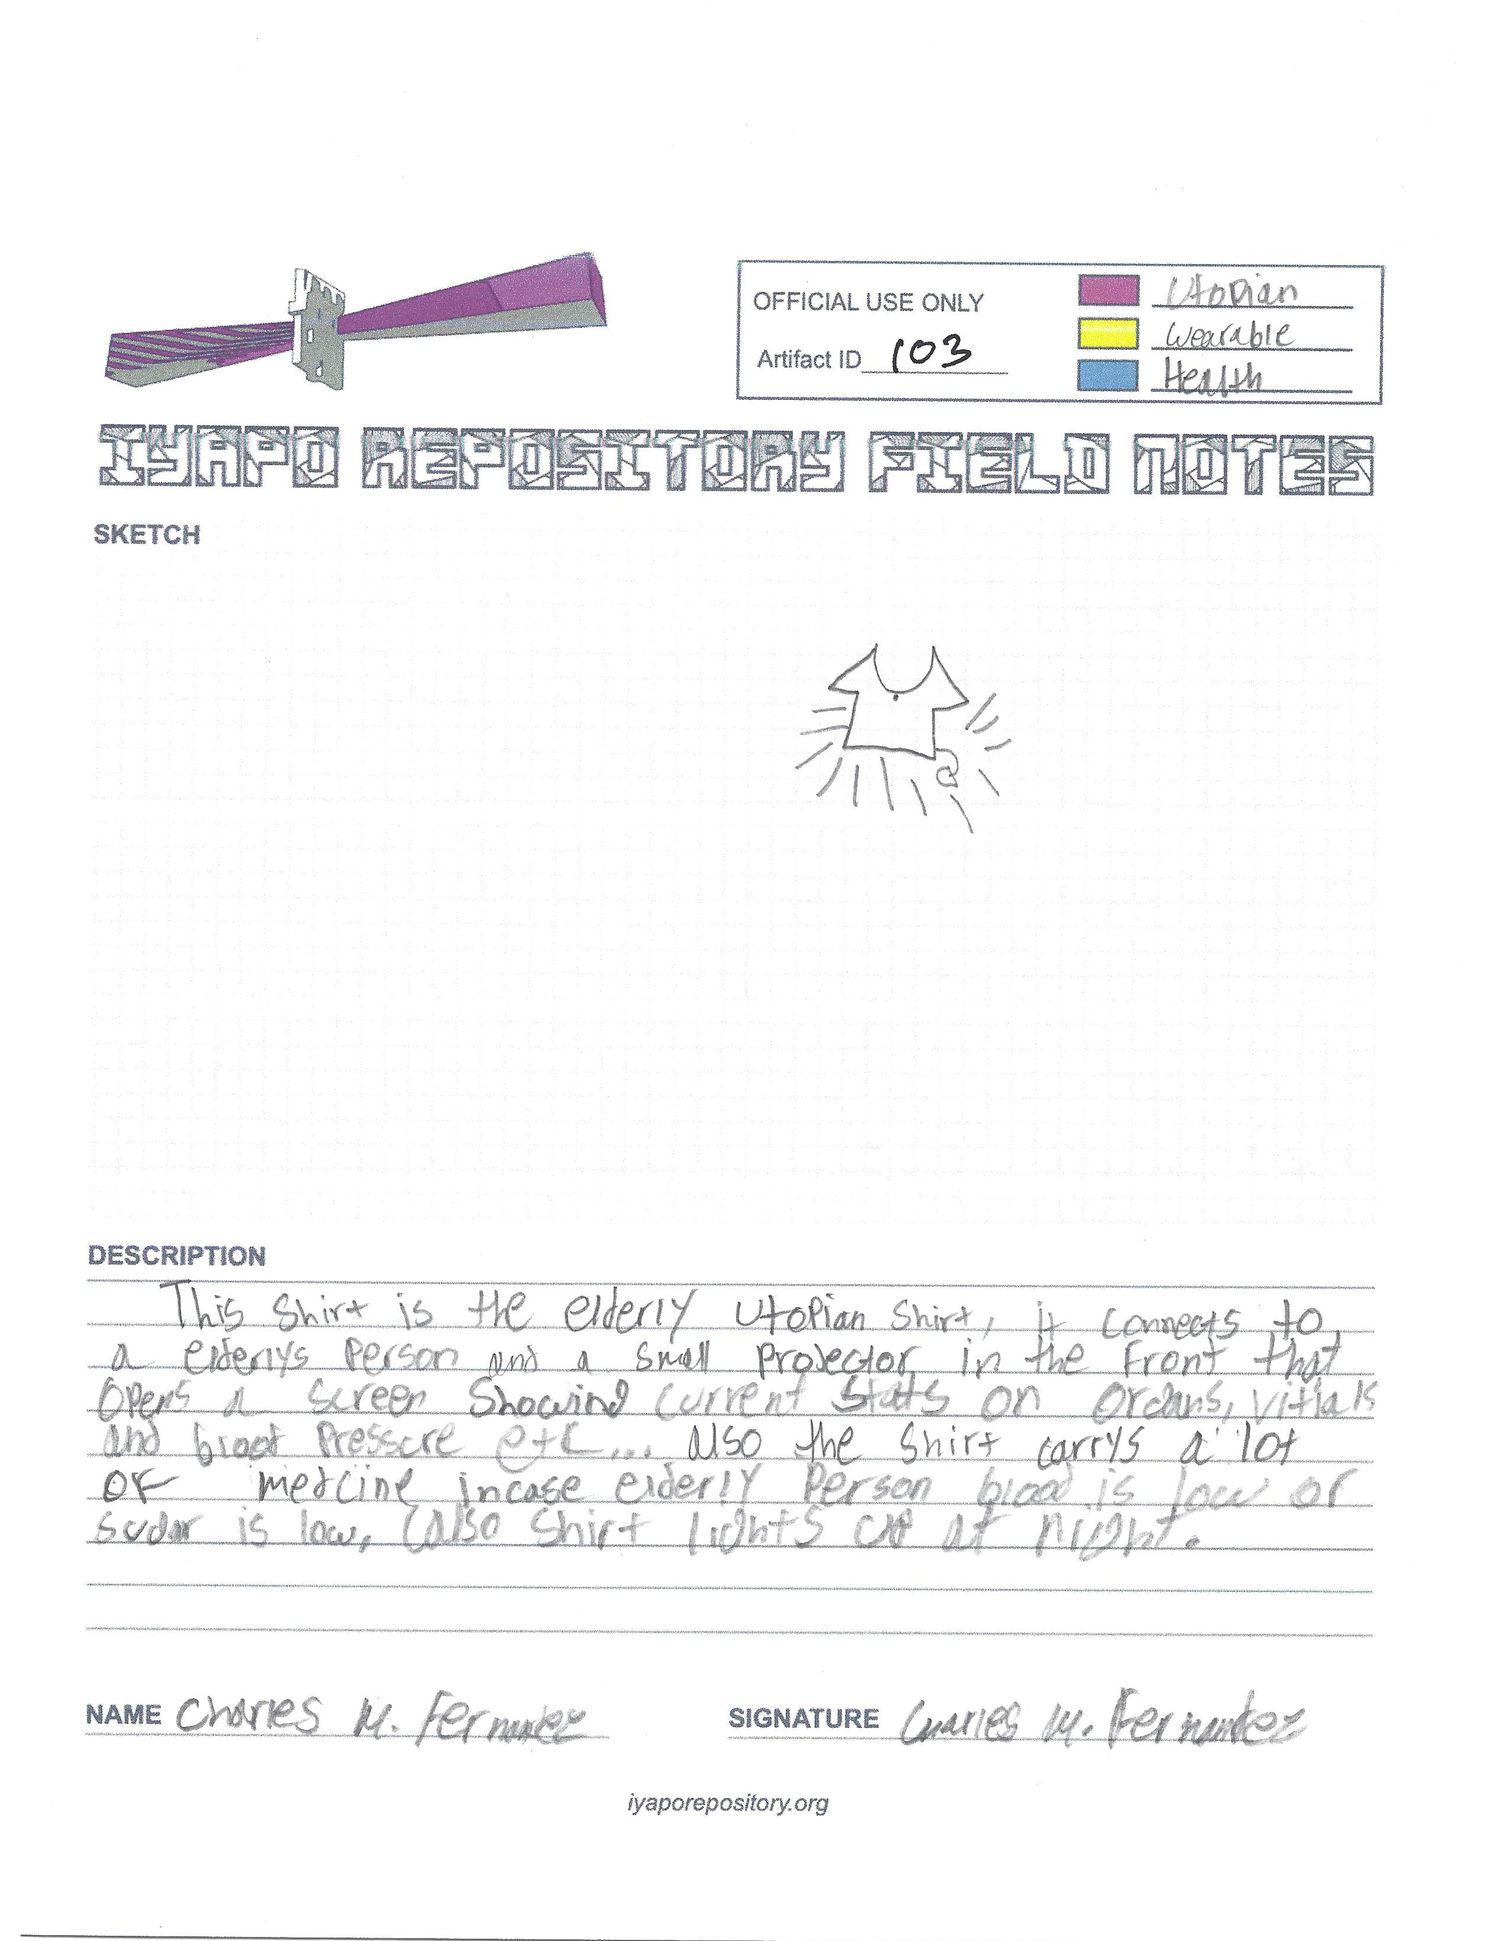 OFFICIAL USE ONLY
Artifact ID 103
Utopian
wearable
Health
IYAPO REPOSITORY FIELD NOTES
SKETCH
DESCRIPTION
This shirt is the elderly Utopian shirt, it connects to
a elderlys Person and a small projector in the Front that
opens a screen showing current stats on organs, vitials
and blood Presscre etc... also the shirt carrys a lot
of medcine incase elderly Person blood is low or
sugar is low, (also shirt lights up at night.
NAME Charles M. Fernandez
SIGNATURE Charles M. Fernandez
iyaporepository.org